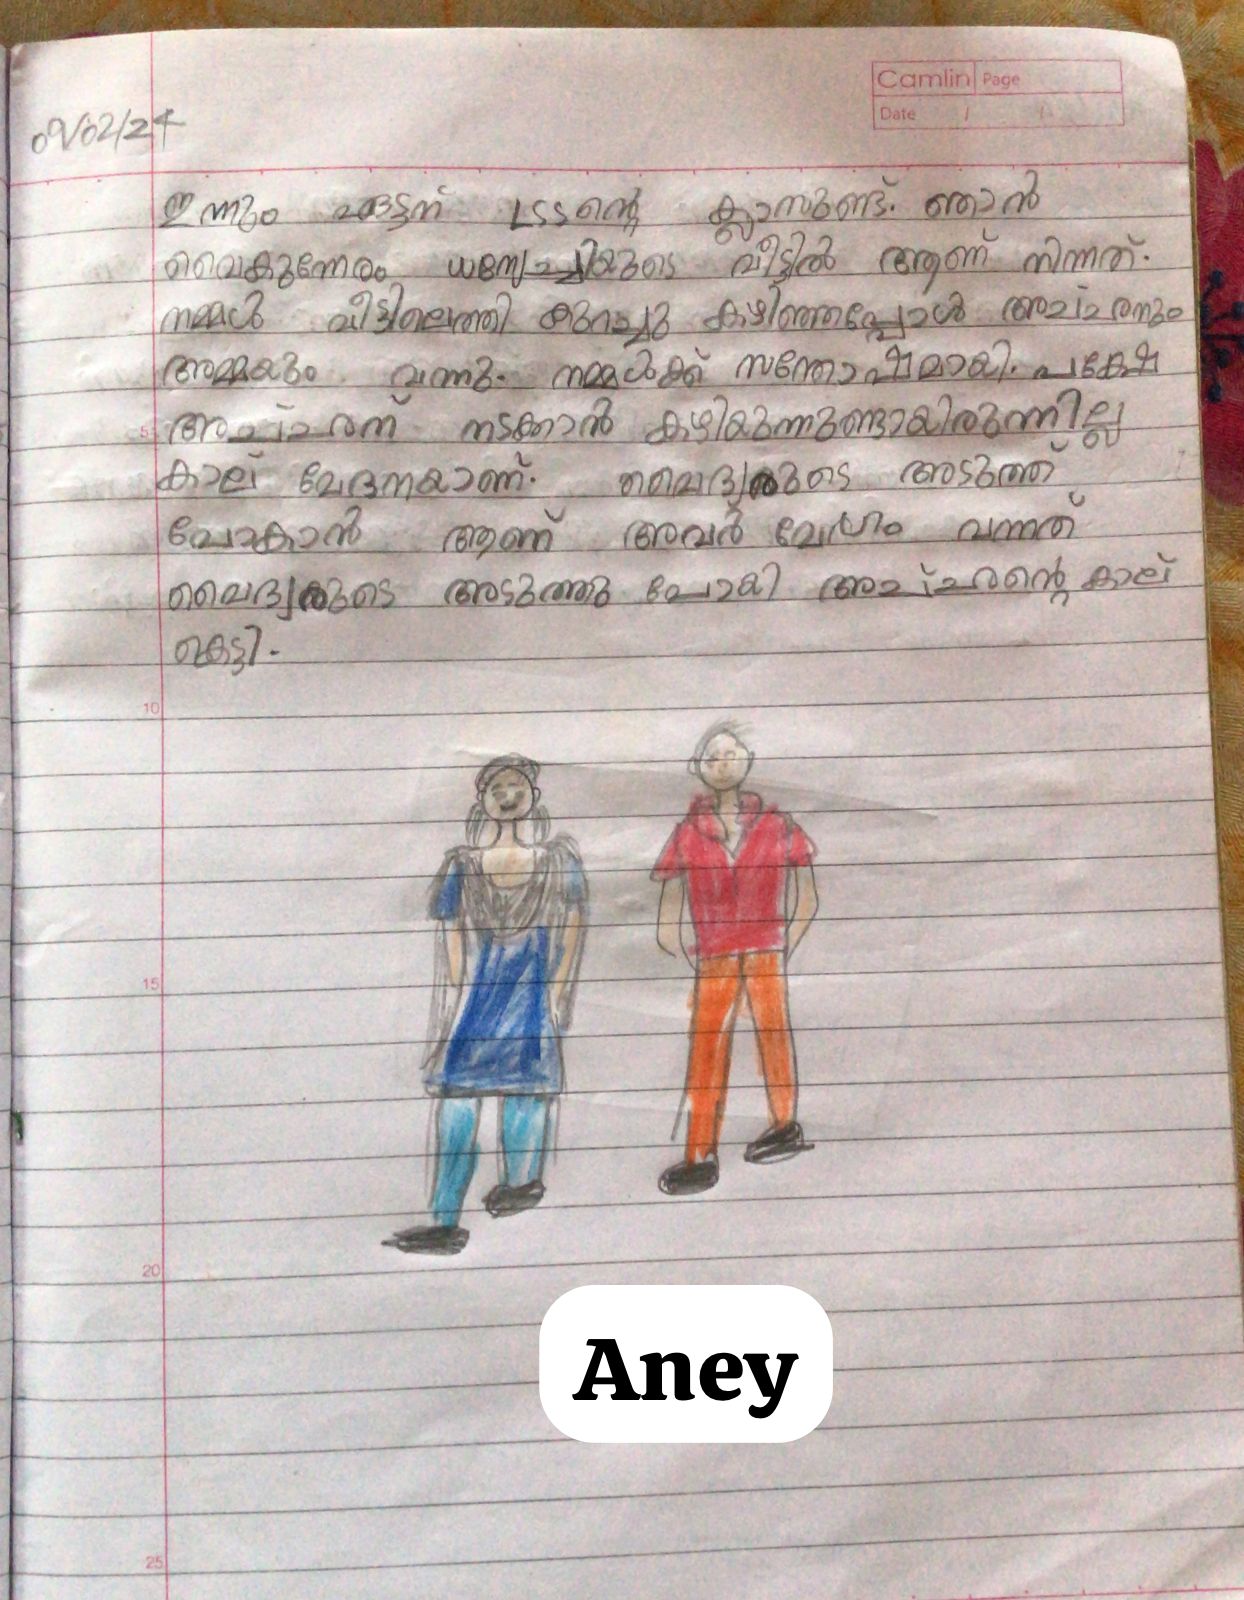 Camlin Page
Date / /
09/02/24
ഇന്നും ഏട്ടന് LSSന്റെ ക്ലാസുണ്ട്. ഞാൻ
വൈകുന്നേരം വീട്ടിൽ ആണ് നിന്നത്.
നമ്മൾ വീട്ടിലെത്തി കുറച്ചു കഴിഞ്ഞപ്പോൾ അച്ഛനും
അമ്മയും വന്നു. നമ്മൾക്ക് സന്തോഷമായി. പക്ഷേ
5 അച്ഛന് നടക്കാൻ കഴിയുന്നുണ്ടായിരുന്നില്ല
കാല് വേദനയാണ്. വൈദ്യരുടെ അടുത്ത്
പോകാൻ ആണ് അവർ വേഗം വന്നത്
വൈദ്യരുടെ അടുത്തു പോയി അച്ഛന്റെ കാല്
കെട്ടി.
10
15
20
Aney
25